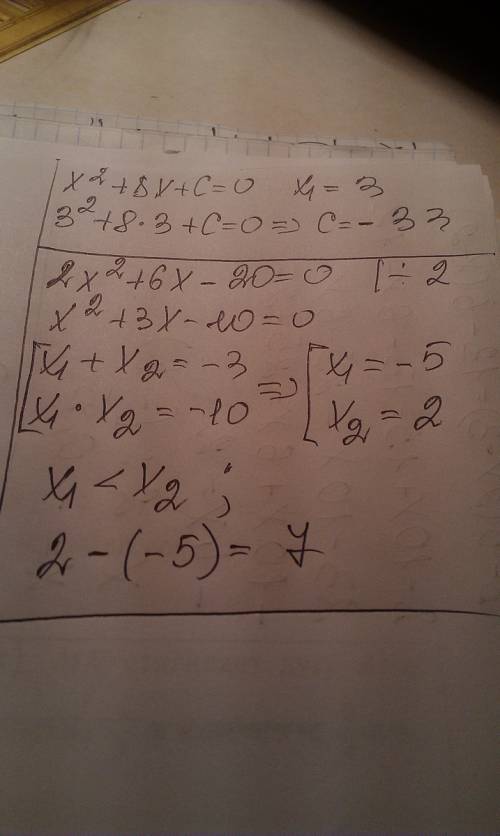 x² + 8x + c = 0 x₁ = 3
3² + 8·3 + c = 0 => c = -33
2x² + 6x - 20 = 0 | ÷ 2
x² + 3x - 10 = 0
[x₁ + x₂ = -3 => [x₁ = -5
x₁ · x₂ = -10 x₂ = 2
x₁ < x₂ ;
2 - (-5) = 7